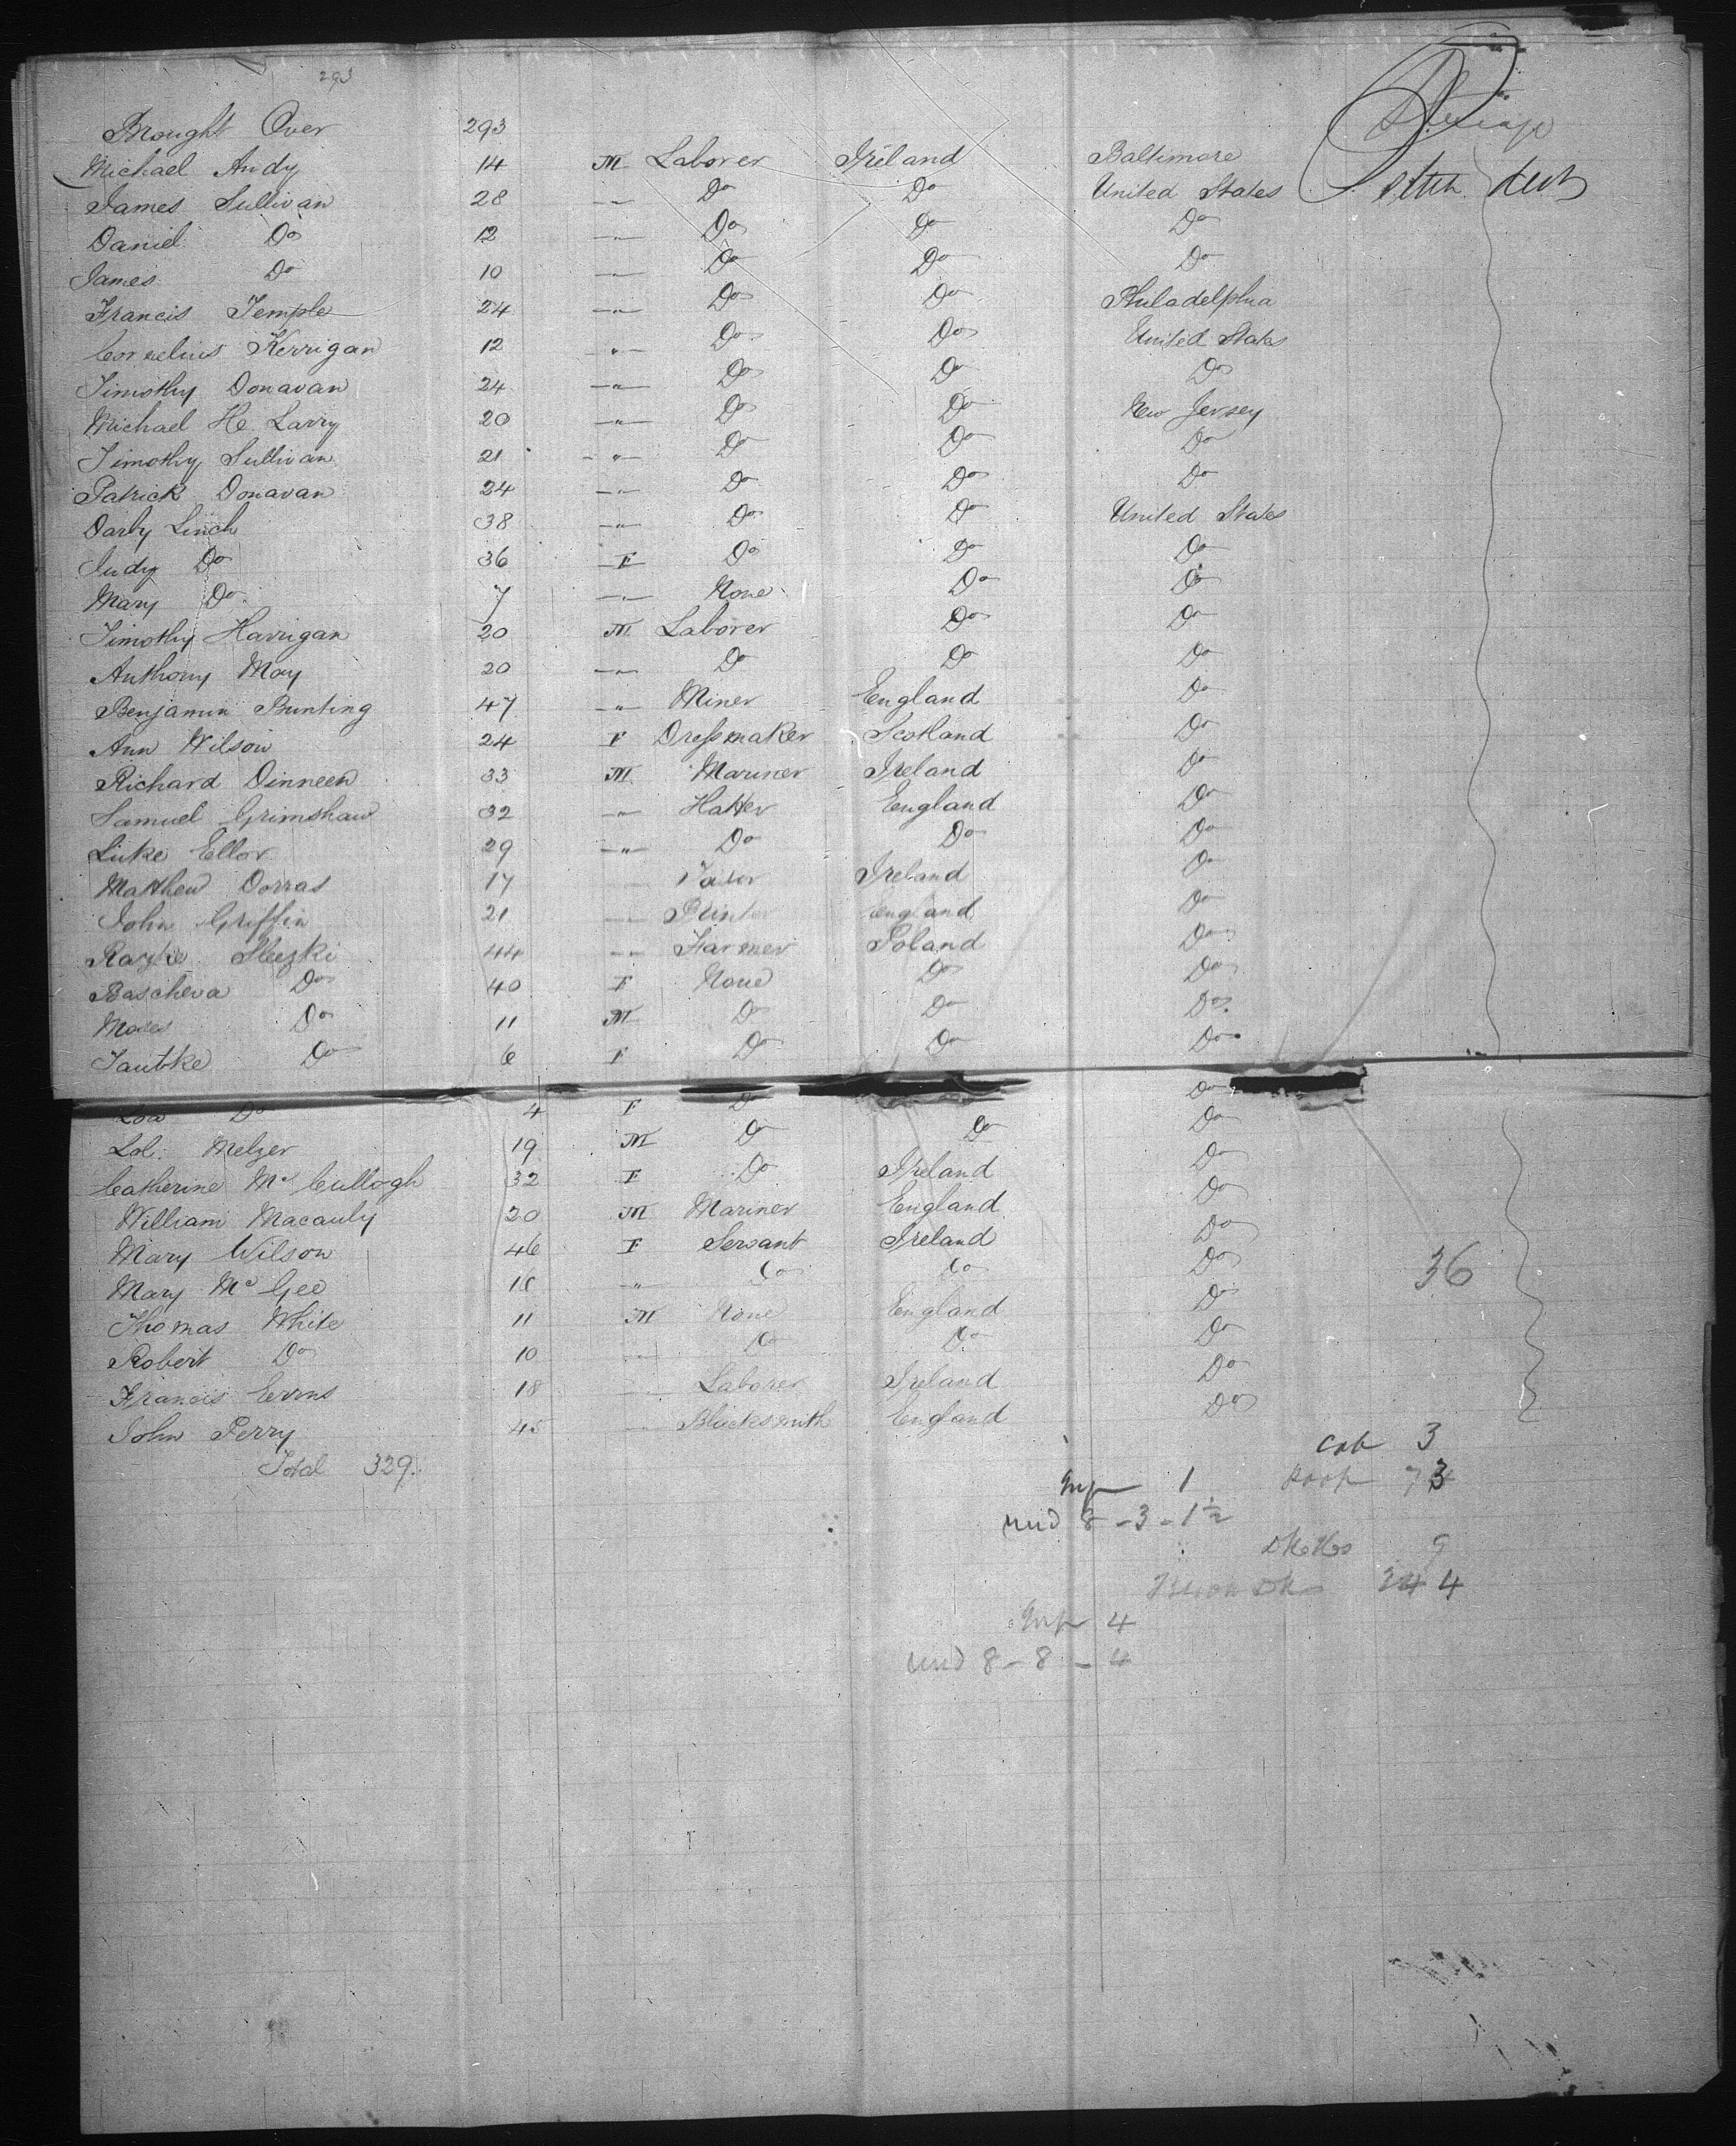 293
Brought Over 293
Michael Andy 14 M Laborer Ireland Baltimore
James Sullivan 28 " Do Do United States
Daniel Do 12 " Do Do Do
James Do 10 " Do Do Do
Francis Temple 24 " Do Do Philadelphia
Cornelius Kerrigan 12 " Do Do United States
Timothy Donavan 24 " Do Do Do
Michael He. Larry 20 " Do Do New Jersey
Timothy Sullivan 21 " Do Do Do
Patrick Donavan 24 " Do Do Do
Darby Linch 38 " Do Do United States
Judy Do 36 F Do Do Do
Mary Do 7 " None Do Do
Timothy Harrigan 20 M Laborer Do Do
Anthony May 20 " Do Do Do
Benjamin Bunting 47 " Miner England Do
Ann Wilson 24 F Dressmaker Scotland Do
Richard Dinneen 33 M Mariner Ireland Do
Samuel Grimshaw 32 " Hatter England Do
Luke Ellor 29 " Do Do Do
Matthew Dorras 17 " Ireland Do
John Griffin 21 " Printer England Do
44 " Farmer Poland Do
Bascheva Do 40 F None Do Do
Moses Do 11 M Do Do Do
Tautke Do 6 F Do Do Do
Do 4 F Do Do
Lol. Melzer 19 M Do Do Do
Catherine Mc Cullogh 32 F Do Ireland Do
William Macauly 20 M Mariner England Do
Mary Wilson 46 F Servant Ireland Do
Mary Mc Gee 16 " Do Do Do
36
Thomas White 11 M None England Do
Robert Do 10 " Do Do Do
Francis 18 " Laborer Ireland Do
John Perry 45 " Blacksmith England Do
Total 329.
cab 3
1
und 8 - 3 - 1½
9
4
und 8 - 8 - 4